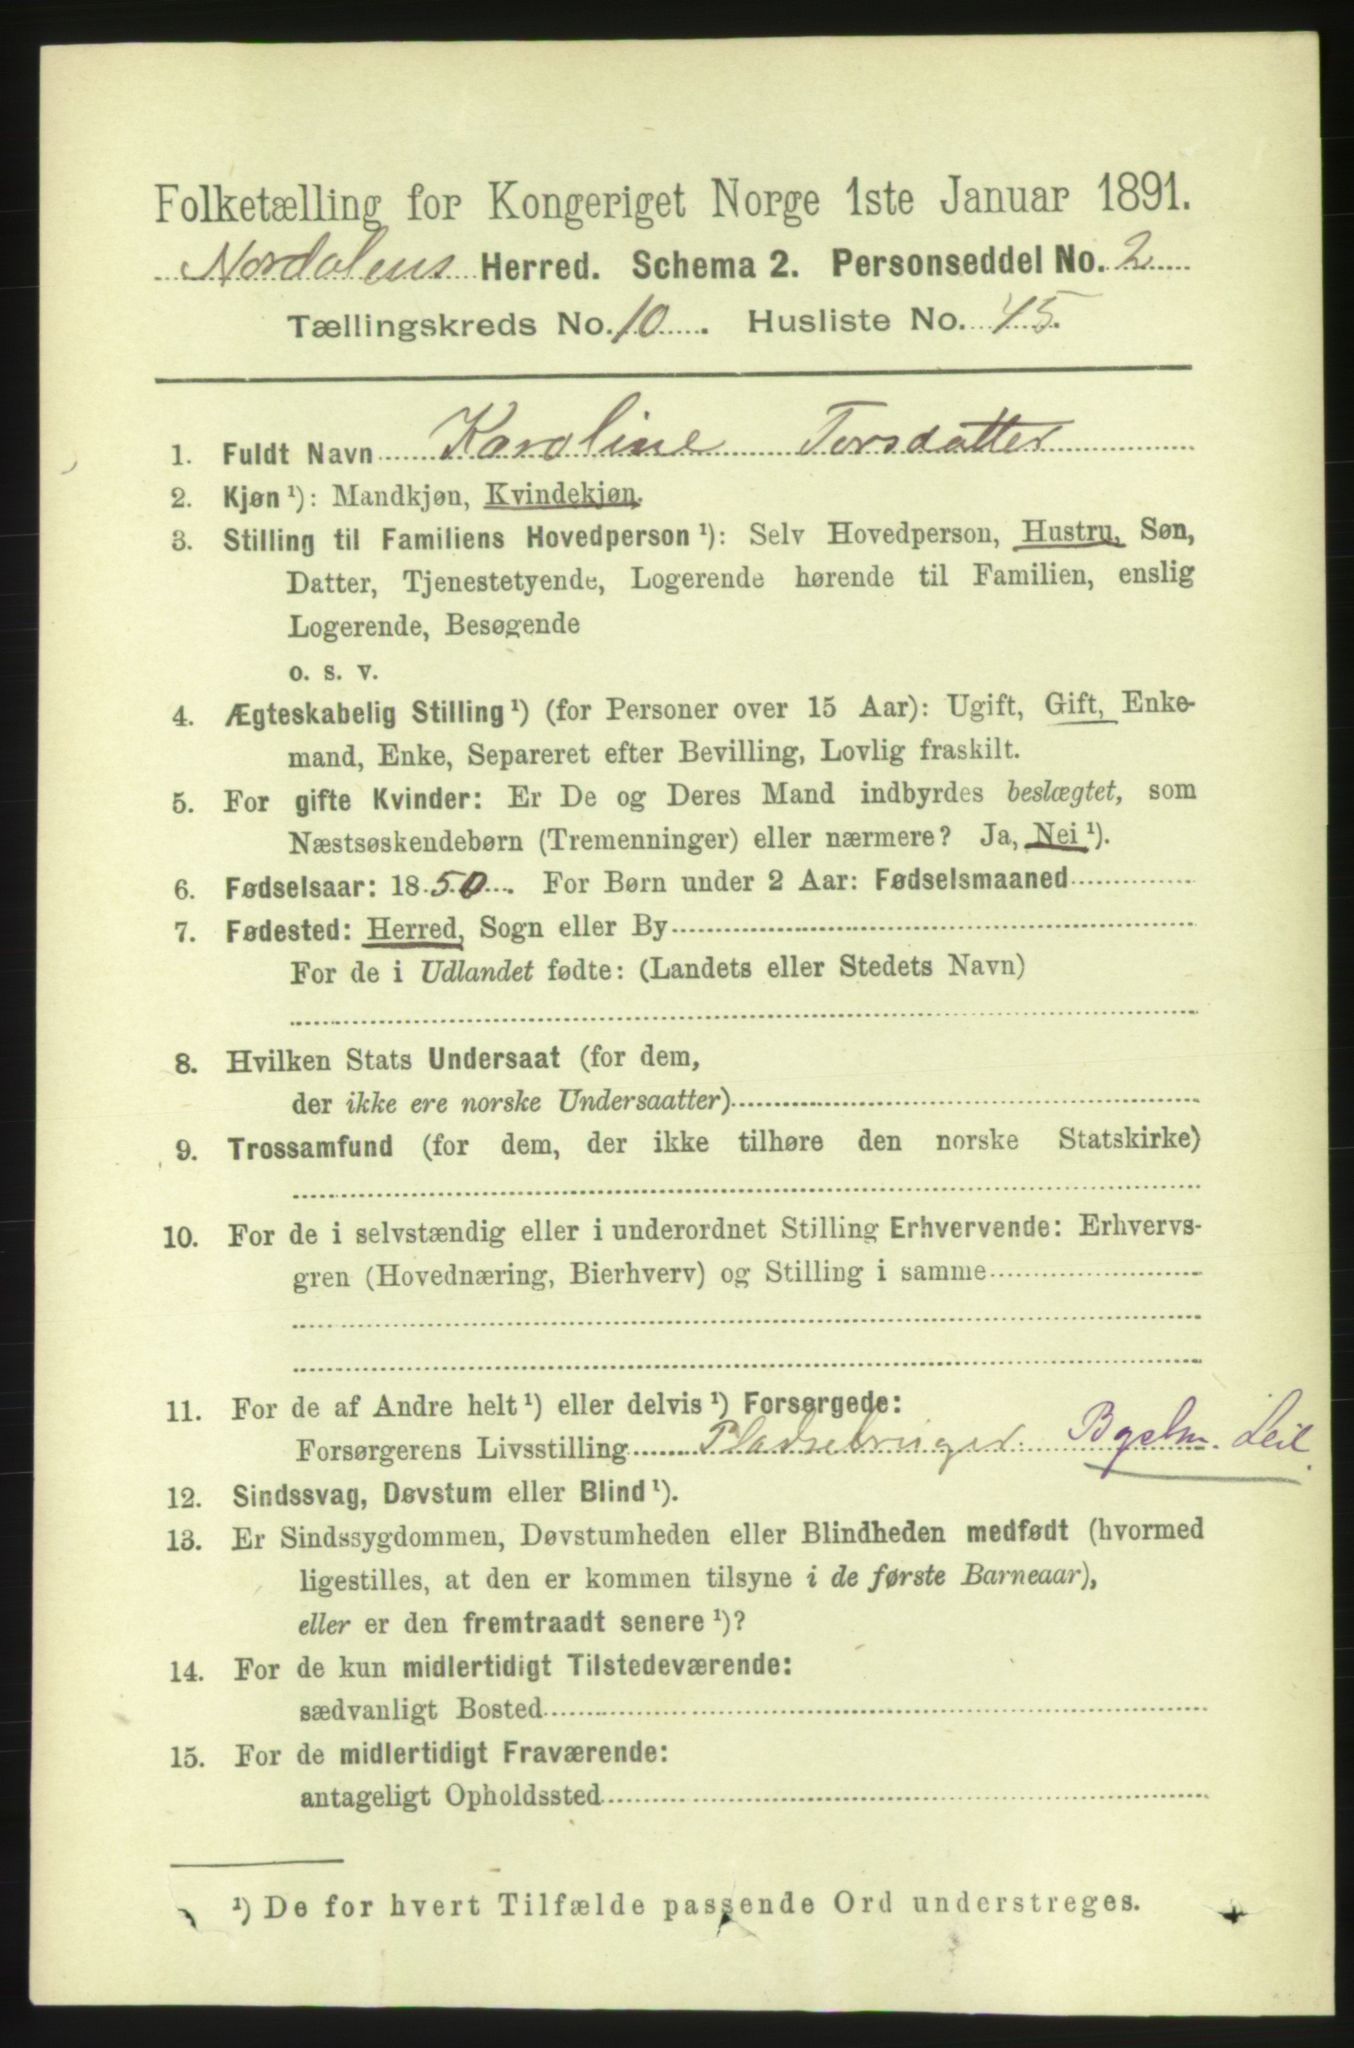 Folketælling for Kongeriget Norge 1ste Januar 1891.
Nordalens Herred. Schema 2. Personseddel No. 2
Tællingskreds No. 10. Husliste No. 45.
1. Fuldt Navn Karoline Torsdatter
2. Kjøn ¹): Mandkjøn, Kvindekjøn.
3. Stilling til Familiens Hovedperson ¹): Selv Hovedperson, Hustru, Søn,
Datter, Tjenestetyende, Logerende hørende til Familien, enslig
Logerende, Besøgende
o. s. v.
4. Ægteskabelig Stilling ¹) (for Personer over 15 Aar): Ugift, Gift, Enke-
mand, Enke, Separeret efter Bevilling, Lovlig fraskilt.
5. For gifte Kvinder: Er De og Deres Mand indbyrdes beslægtet, som
Næstsøskendebørn (Tremenninger) eller nærmere? Ja, Nei ¹).
6. Fødselsaar: 1850. For Børn under 2 Aar: Fødselsmaaned
7. Fødested: Herred, Sogn eller By
For de i Udlandet fødte: (Landets eller Stedets Navn)
8. Hvilken Stats Undersaat (for dem,
der ikke ere norske Undersaatter)
9. Trossamfund (for dem, der ikke tilhøre den norske Statskirke)
10. For de i selvstændig eller i underordnet Stilling Erhvervende: Erhvervs-
gren (Hovednæring, Bierhverv) og Stilling i samme
11. For de af Andre helt ¹) eller delvis ¹) Forsørgede:
Forsørgerens Livsstilling Pladsebruger. Bgslm. Leil.
12. Sindssvag, Døvstum eller Blind ¹).
13. Er Sindssygdommen, Døvstumheden eller Blindheden medfødt (hvormed
ligestilles, at den er kommen tilsyne i de første Barneaar),
eller er den fremtraadt senere ¹)?
14. For de kun midlertidigt Tilstedeværende:
sædvanligt Bosted
15. For de midlertidigt Fraværende:
antageligt Opholdssted
¹) De for hvert Tilfælde passende Ord understreges.